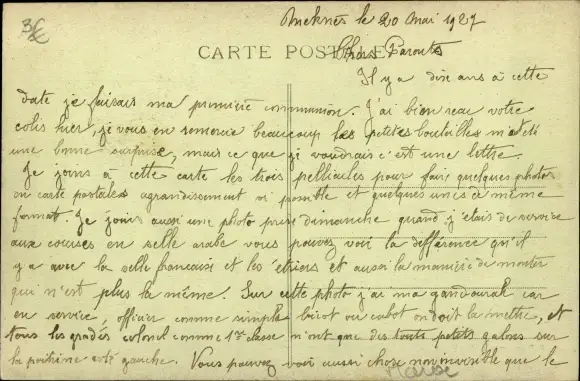 3€
Meknès le 20 Mai 1927
CARTE POSTALE
Chers Parents
Il y a dix ans à cette
date je faisais ma première communion. J'ai bien reçu votre
colis hier, je vous en remercie beaucoup les petites bouteilles m'a été
une bonne surprise, mais ce que je voudrais c'est une lettre.
Je joins à cette carte les trois pellicules pour faire quelques photos
en carte postales agrandissement si possible et quelques unes ce même
format. Je joins aussi une photo prise dimanche quand j'étais de service
aux courses en selle arabe vous pouvez voir la différence qu'il
y a avec la selle française et les étriers et aussi la manière de monter
qui n'est plus la même. Sur cette photo j'ai ma gandourah car
en service, officier comme simple bicot ou cabot on doit la mettre, et
tous les gradés colonel comme 1re classe n'ont que des touts petits galons sur
la poitrine côté gauche. Vous pouvez voir aussi chose non invisible que le
Maroc